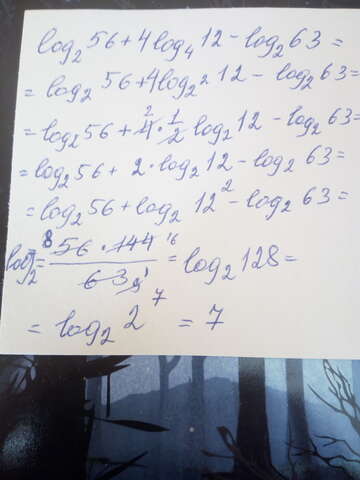 log₂56+4log₄12-log₂63=
=log₂56+4log₂²12-log₂63=
=log₂56+4²·1/2 log₂12-log₂63=
=log₂56+2·log₂12-log₂63=
=log₂56+log₂12²-log₂63=
log₂= 8 56·144 16 / 63 9 1 =log₂128=
=log₂2⁷=7